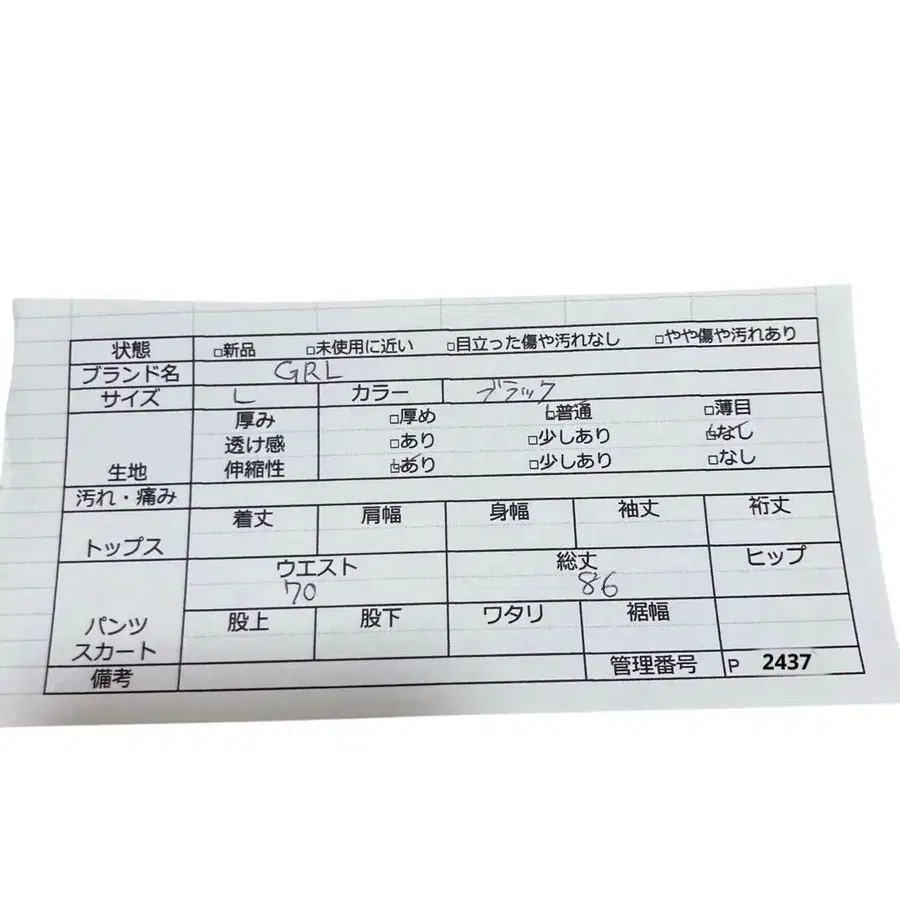 状態 □新品 □未使用に近い □目立った傷や汚れなし □やや傷や汚れあり
ブランド名 GRL
サイズ L カラー ブラック
厚み □厚め ☑普通 □薄目
透け感 □あり □少しあり ☑なし
生地 伸縮性 ☑あり □少しあり □なし
汚れ・痛み
着丈 肩幅 身幅 袖丈 裄丈
トップス
ウエスト 総丈 ヒップ
70 86
股上 股下 ワタリ 裾幅
パンツ
スカート
備考 管理番号 P 2437